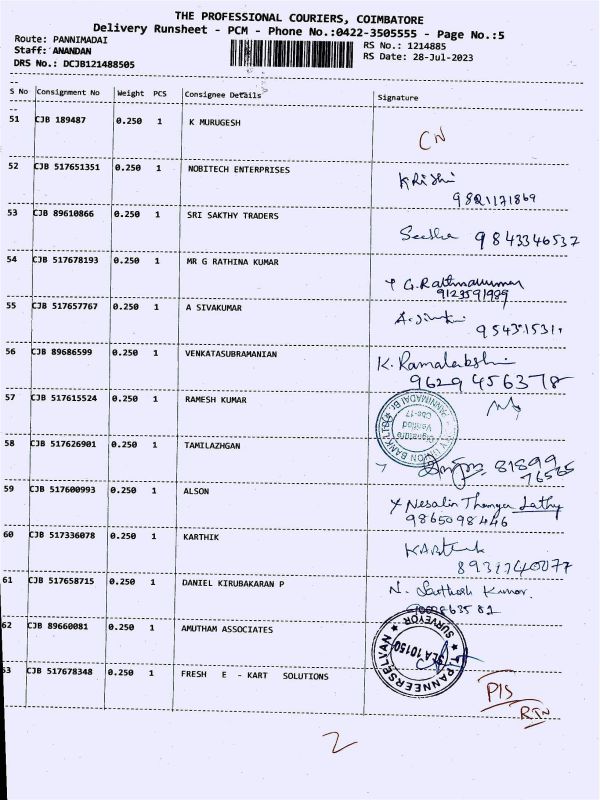 THE PROFESSIONAL COURIERS, COIMBATORE
Delivery Runsheet - PCM - Phone No.:0422-3505555 - Page No.:5
Route: PANNIMADAI
Staff: ANANDAN
DRS No.: DCJB121488505
RS No.: 1214885
RS Date: 28-Jul-2023
S No Consignment No Weight PCS Consignee Details Signature
51 CJB 189487 0.250 1 K MURUGESH
CN
52 CJB 517651351 0.250 1 NOBITECH ENTERPRISES
Krishi
9821171869
53 CJB 89610866 0.250 1 SRI SAKTHY TRADERS
9843346537
54 CJB 517678193 0.250 1 MR G RATHINA KUMAR
G. Rathnakumar
9123591989
55 CJB 517657767 0.250 1 A SIVAKUMAR
56 CJB 89686599 0.250 1 VENKATASUBRAMANIAN
K. Ramalakshmi
9629456378
57 CJB 517615524 0.250 1 RAMESH KUMAR
Signature
Verified
58 CJB 517626901 0.250 1 TAMILAZHGAN
81899
76565
59 CJB 517600993 0.250 1 ALSON
Nesalin Thangar Lathy
9865098446
60 CJB 517336078 0.250 1 KARTHIK
Karthik
61 CJB 517658715 0.250 1 DANIEL KIRUBAKARAN P
N. Santhosh Kumar.
62 CJB 89660081 0.250 1 AMUTHAM ASSOCIATES
T. PANNEERSELVAN
SURVEYOR
63 CJB 517678348 0.250 1 FRESH E - KART SOLUTIONS
PIS
RTN
2